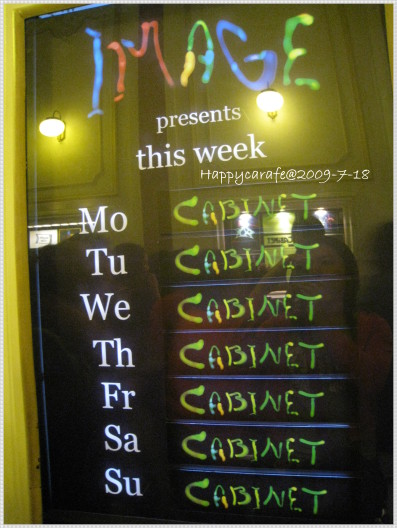 IMAGE
presents
this week
Happycarafe@2009-7-18
Mo CABINET
Tu CABINET
We CABINET
Th CABINET
Fr CABINET
Sa CABINET
Su CABINET